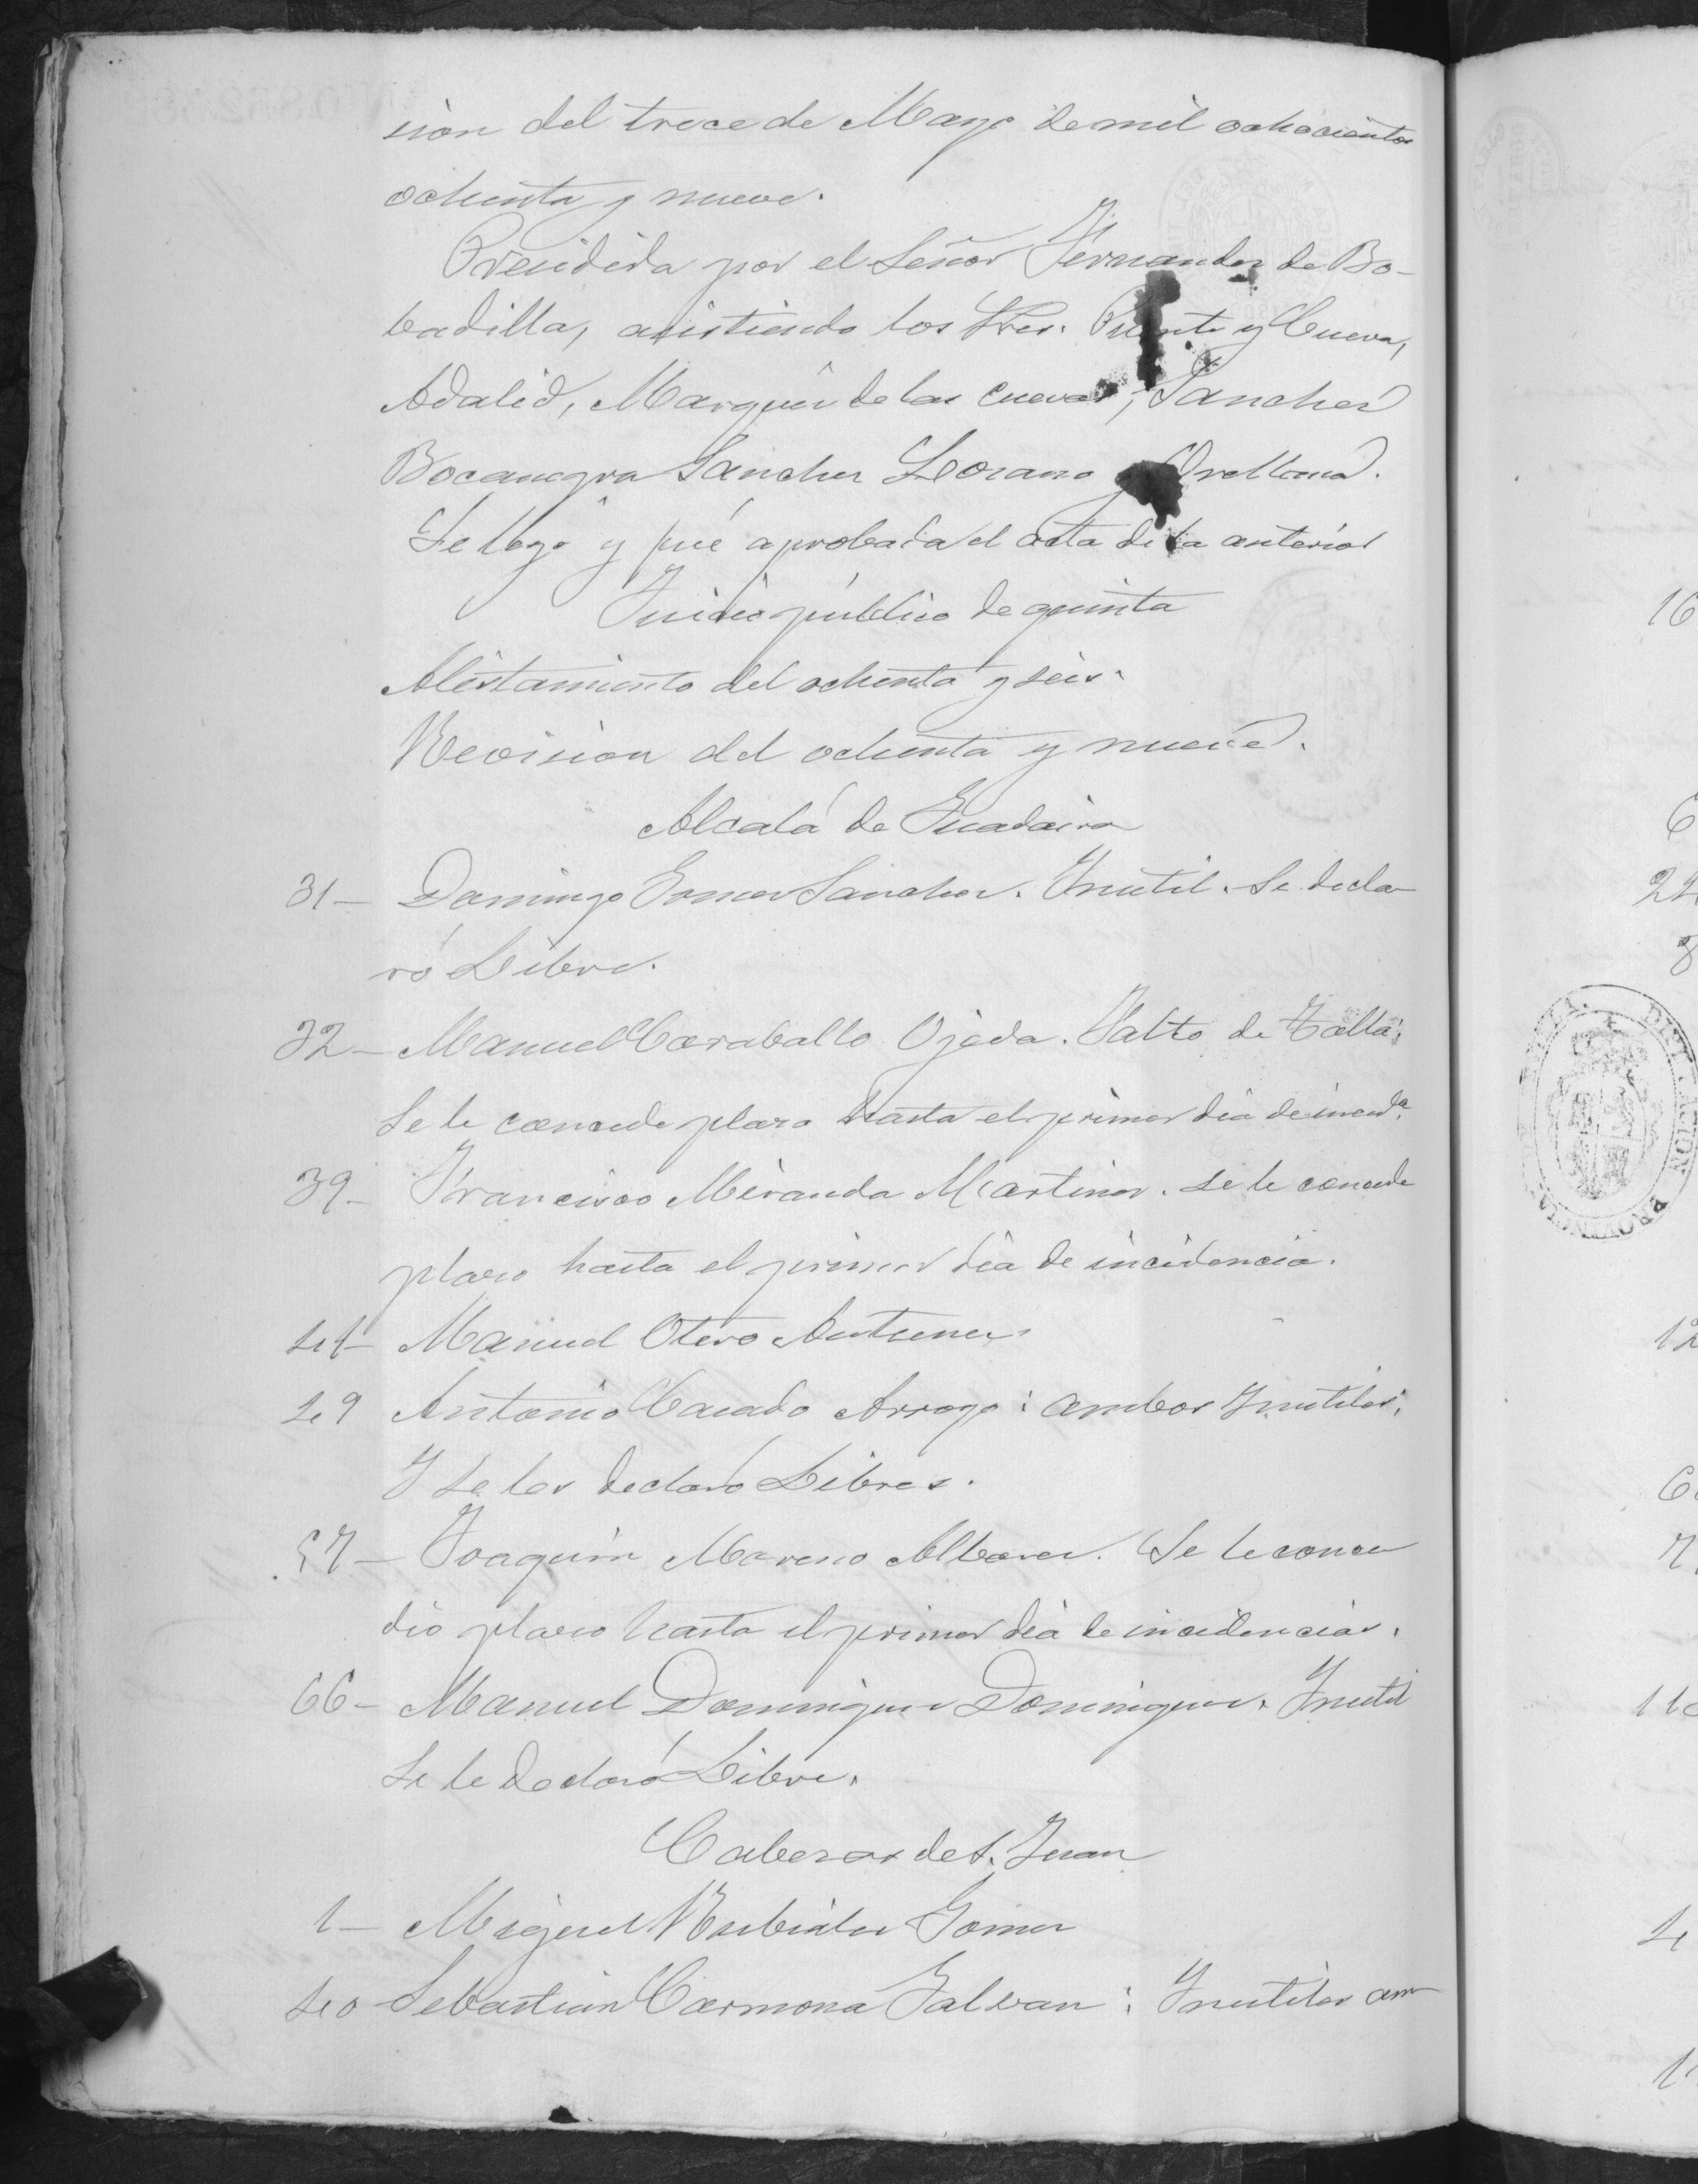 sion del trece de Mayo de mil ochocientos
ochenta y nueve.
Presidida por el Señor Fernandez de Bo-
badilla, asistiendo los Sres. Puente y Cueva,
Adalid, Marqués de las Cuevas, Sanchez
Bocanegra Sanchez Lozano y Orellana.
Se leyó y fué aprobada el acta de la anterior
Juicio público de quinta
Alistamiento del ochenta y seis.
Revision del ochenta y nueve.
Alcalá de Guadaira
31- Domingo Gomez Sanchez. Inutil. Se decla-
ró Libre.
32- Manuel Caraballo Ojeda. Falto de Talla.
Se le concede plazo hasta el primer dia de incid.ª
39- Francisco Miranda Martinez. Se le concede
plazo hasta el primer dia de incidencia.
41- Manuel Otero Antunez
49 Antonio Casado Arroyo: ambos Inutiles.
Y se les declaró Libres.
57- Joaquin Moreno Alvarez. Se le conce
dió plazo hasta el primer dia de incidencias.
66- Manuel Dominguez Dominguez. Inutil
Se le declaró Libre.
Cabezas de S. Juan
1- Miguel Rubiales Gomez
40- Sebastian Carmona Galvan: Inutiles am
16
6
22
8
DIPUTACION PROVINCIAL
12
6
7
11
4
1